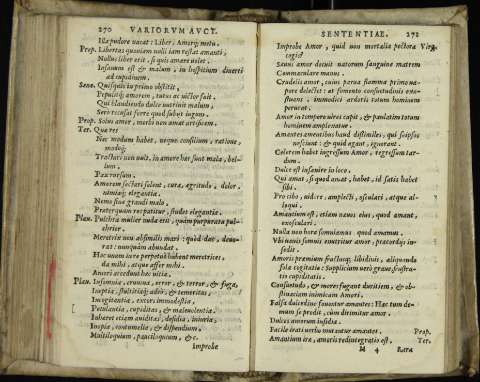 270 VARIORVM AVCT.
Ille pudore vacat: Liber, Amorq; metu.
Prop. Libertas quoniam nulli iam restat amanti,
Nullus liber erit, si quis amare volet.
Insanum est & malum, in hospitium diverti
ad cupidinem.
Sene. Quisquis in primo obstitit,
Pepulitq; amorem, tutus ac victor fuit.
Qui blandiendo dulce nutrivit malum,
Sero recusat ferre quod subijt iugum.
Prop. Solus amor, morbi non amat artificem.
Ter. Quae res
Nec modum habet, neque consilium, ratione,
modoq;
Tractari non vult, in amore haec sunt mala, bellum.
Pax rursum.
Amorem sectari solent, cura, aegritudo, dolor,
nimiaq; elegantia.
Nemo sine grandi malo,
Praeterquam res patitur, studet elegantiae.
Plau. Pulchra mulier nuda erit, quàm purpurata pulchrior.
Meretrix
Hac unam iure perpetuò habent meretrices:
da mihi, atque affer mihi.
Amori accedunt haec vitia.
Plau. Insomnia, erumna, error, & terror, & fuga,
Ineptia, stultitiaq; adeò, & temeritas,
Incogitantia, excors immodestia,
Petulantia, cupiditas, & malevolentia.
Inhaeret etiam aviditas, desidia, iniuria,
Inopia, contumelia, & dispendium,
Multiloquium, pauciloquium, &c.
Improbe
SENTENTIAE. 271
Improbe Amor, quid non mortalia pectora Virg.
cogis?
Saevus amor docuit natorum sanguine matrem
Commaculare manus.
Crudelis amor, cuius parva flamma primo vapore
delectet: at fomento consuetudinis exaestuans,
immodici ardoris totum hominem
perurat.
Amor in tempore vires capit, & paulatim totum
hominem amplectitur.
Amantes amentibus haud dissimiles, qui seipsos
nesciunt: & quid agant, ignorant.
Celerem habet ingressum Amor, regressum tardum.
Dulce est insanire in loco.
Qui amat, si quod amat, habet, id satis habet
sibi.
Pro cibo, videre, amplecti, osculari, atque alloqui.
Amantium est, etiam navos eius, quod amant,
exosculari.
Nulla non hora somniamus quod amamus.
Ubi navis somnis enutritur amor, praecordijs insedit.
Amoris praemium fructusq; libidinis, aliquando
sola cogitatio: Supplicium verò grave frustratis
cupiditatis.
Consuetudo, & mores fugant duritiem, & obstinatiam
inimicam Amori.
Falsa duleedine foventur amantes: Haec tum demum
se prodit, cùm dirimitur amor.
Dulces amorum insidiae.
Facile irati verbo mutantur amantes. Prop.
Amantium irae, amoris redintegratio est. Ter.
M 4 Rara